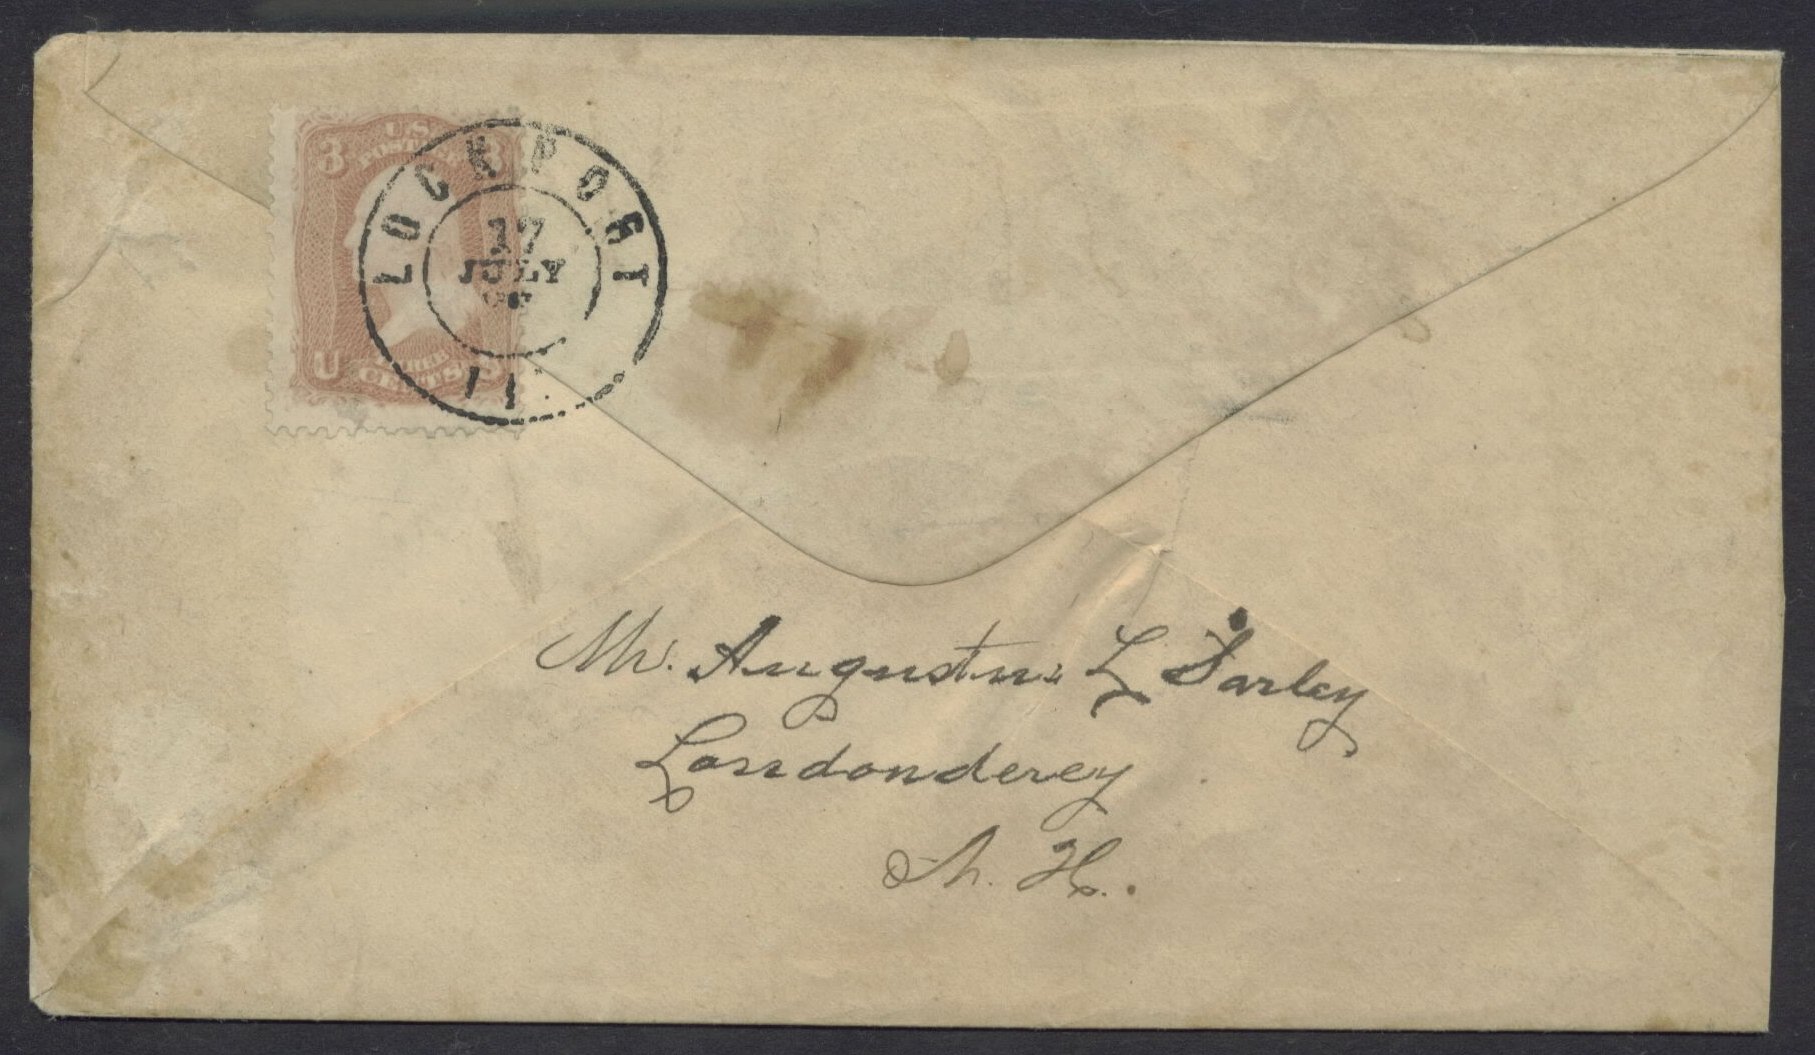 U.S. POSTAGE
3 3
LOCKPORT
17
JULY
Ill
U S
THREE CENTS
Mr. Augustus L Farley
Londonderey
N. H.